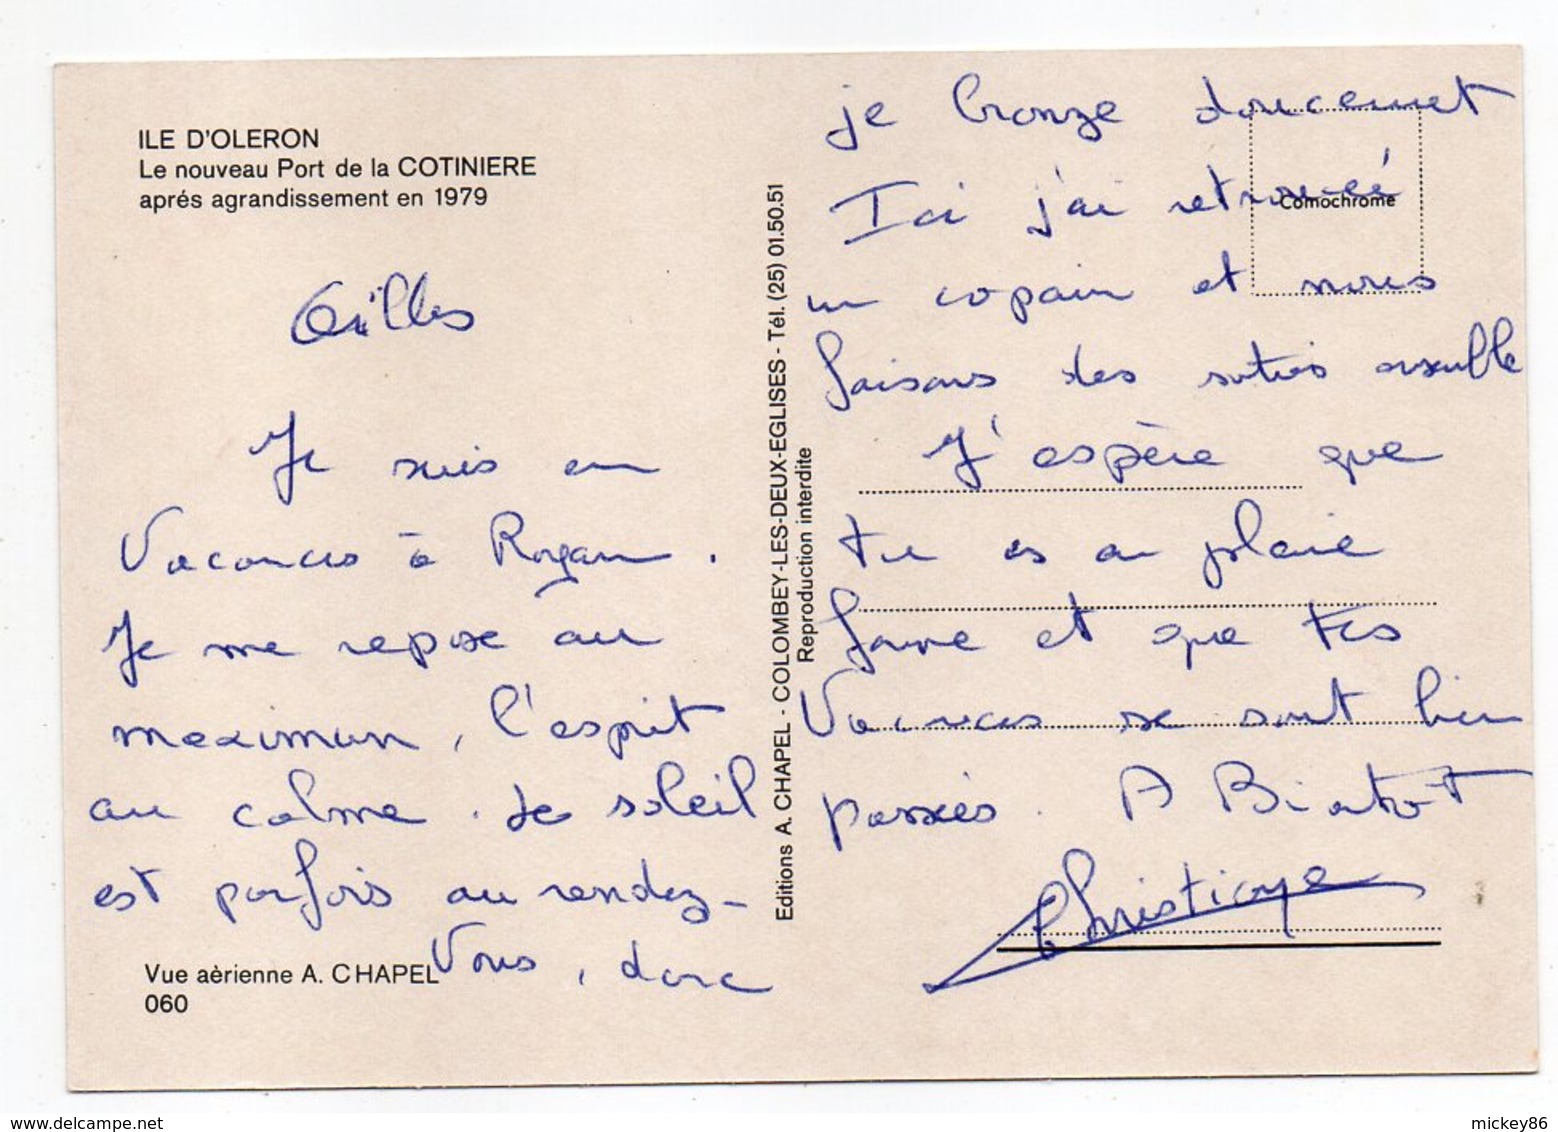 ILE D'OLERON
Le nouveau Port de la COTINIERE
aprés agrandissement en 1979
Gilles
Je suis en
Vacances à Royan.
Je me repose au
maximun, l'esprit
au calme. Le soleil
est parfois au rendez-
Vous, donc
Vue aèrienne A. CHAPEL
060
Editions A. CHAPEL - COLOMBEY-LES-DEUX-EGLISES - Tél. (25) 01.50.51
Reproduction interdite
je bronze doucemet
Ici j'ai retrouvé
Comochrome
un copain et nous
faisons des sorties ensemble
J'espère que
tu es en pleine
forme et que tes
Vacances se sont bien
passées. A Bientot
Christiane
mickey86